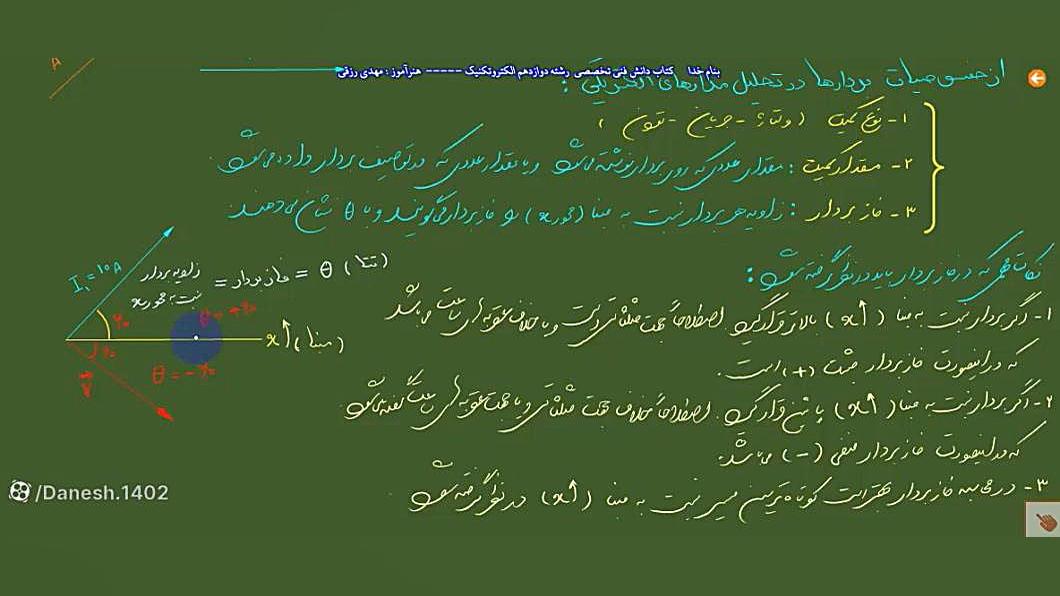 بنام خدا کتاب دانش فنی تخصصی رشته دوازدهم الکتروتکنیک ----- هنرآموز : مهدی رزقی
از خصوصیات بردارها در تحلیل مدارهای الکتریکی :
۱- نوع کمیت ( ولتاژ - جریان - توان )
۲- مقدار کمیت : مقدار عددی که روی بردار نوشته می‌شود و یا مقدار عددی که در توصیف بردار داده می‌شود.
۳- فاز بردار : زاویه هر بردار نسبت به مبنا (محور x) را فاز بردار می‌گویند و با θ نشان می‌دهند.
A
I₁ = 10A
زاویه بردار نسبت به محور x = فاز بردار = θ (تتا)
x↑ (مبنا)
V
نکات مهمی که در فاز بردار باید در نظر گرفته شود :
۱- اگر بردار نسبت به مبنا (x↑) بالاتر قرار گیرد اصطلاحاً جهت مثلثاتی است و یا خلاف عقربه‌ای ساعت می‌باشد
که در اینصورت فاز بردار مثبت (+) است.
۲- اگر بردار نسبت به مبنا (x↑) پایین قرار گیرد. اصطلاحاً خلاف جهت مثلثاتی و یا جهت عقربه‌ای ساعت گفته می‌شود
که در اینصورت فاز بردار منفی (-) می‌باشد.
۳- در محاسبه فاز بردار بهتر است کوتاه‌ترین مسیر نسبت به مبنا (x↑) در نظر گرفته شود.
/Danesh.1402